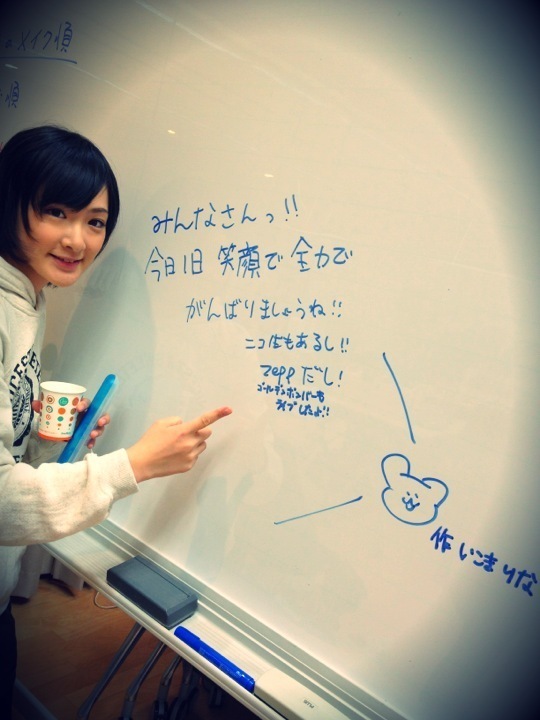 のメイク順
順
みんなさんっ!!
今日1日 笑顔で 全力で
がんばりましょうね!!
ニコ生もあるし!!
zeppだし!
ゴールデンボンバーも
ライブしたよ!!
作 いこまりな